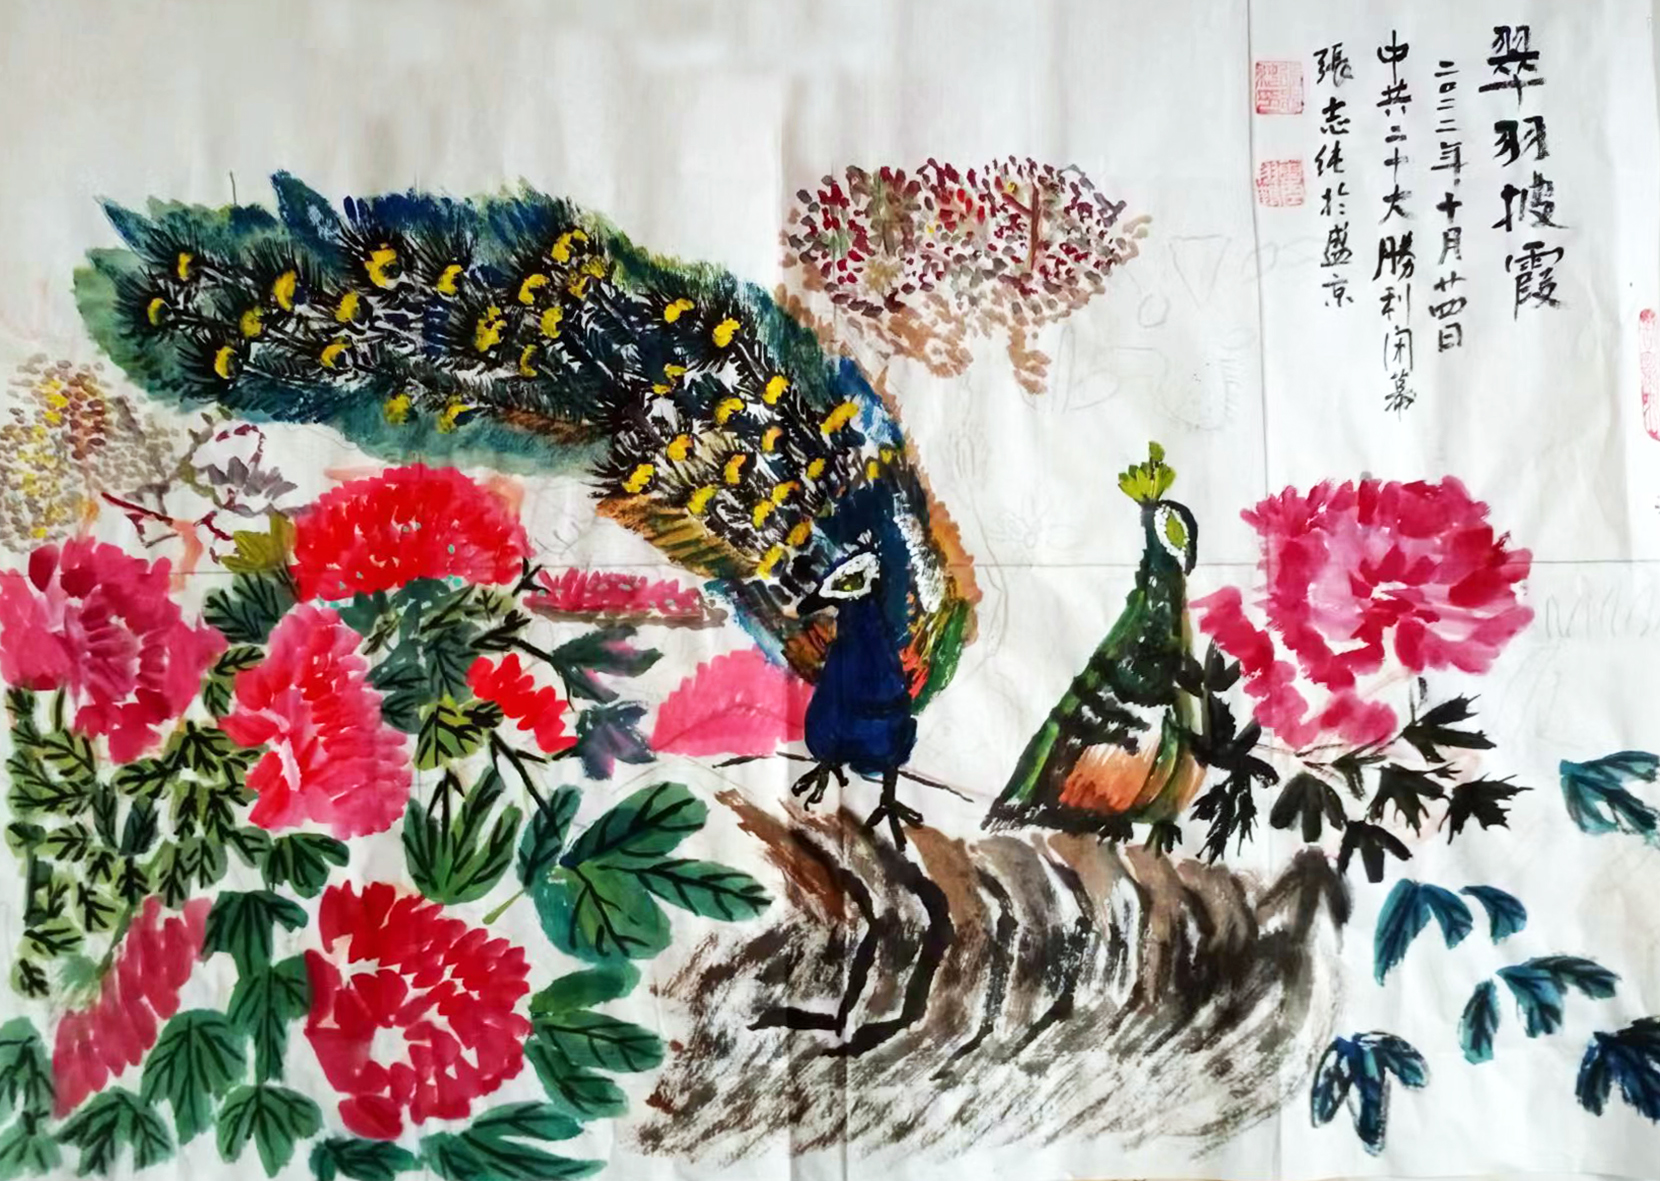 翠羽披霞
二〇二二年十月廿四日
中共二十大勝利闭幕
張志纯於盛京